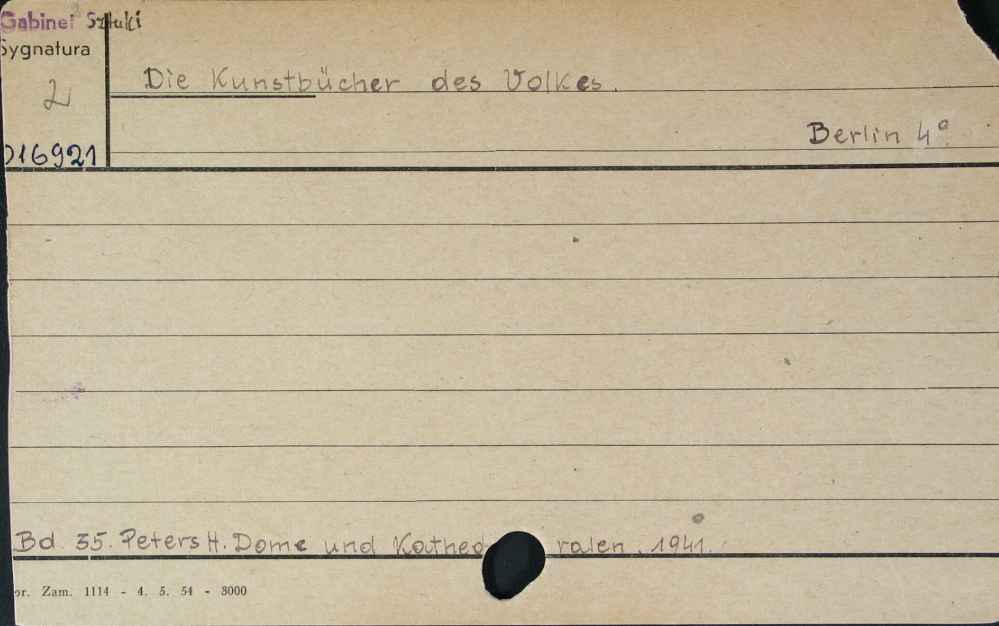 Gabinet Sztuki
Sygnatura
2
Die Kunstbücher des Volkes.
Berlin 4°.
016921
Bd. 35. Peters H. Dome und Kathed ralen. 1941.
or. Zam. 1114 - 4. 5. 54 - 3000